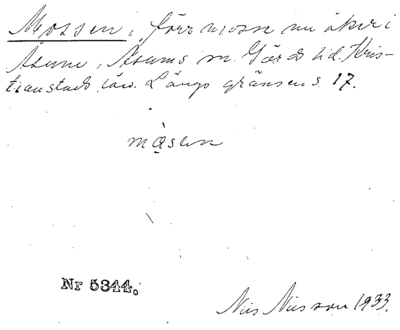 Mossen, förr mosse nu åker i
Åsum, Åsums sn. Gärds hd. Kris-
tianstads län. Längs gränsen s. 17.
måsen
Nr 5344.
Nils Nilsson 1933.